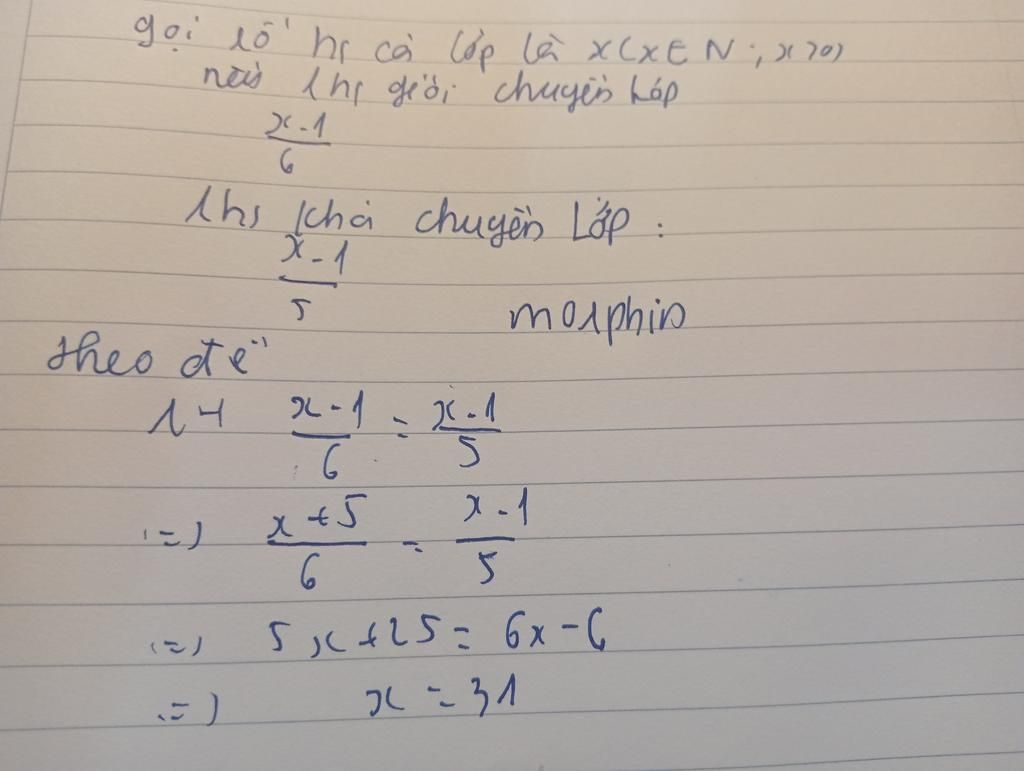 gọi số hs cả lớp là x (x ∈ N ; x > 0)
nếu 1 hs giỏi chuyển lớp
x - 1 / 6
1 hs khá chuyển lớp :
x - 1 / 5
morphin
theo đề
1 + x - 1 / 6 = x - 1 / 5
<=> x + 5 / 6 = x - 1 / 5
<=> 5x + 25 = 6x - 6
<=> x = 31